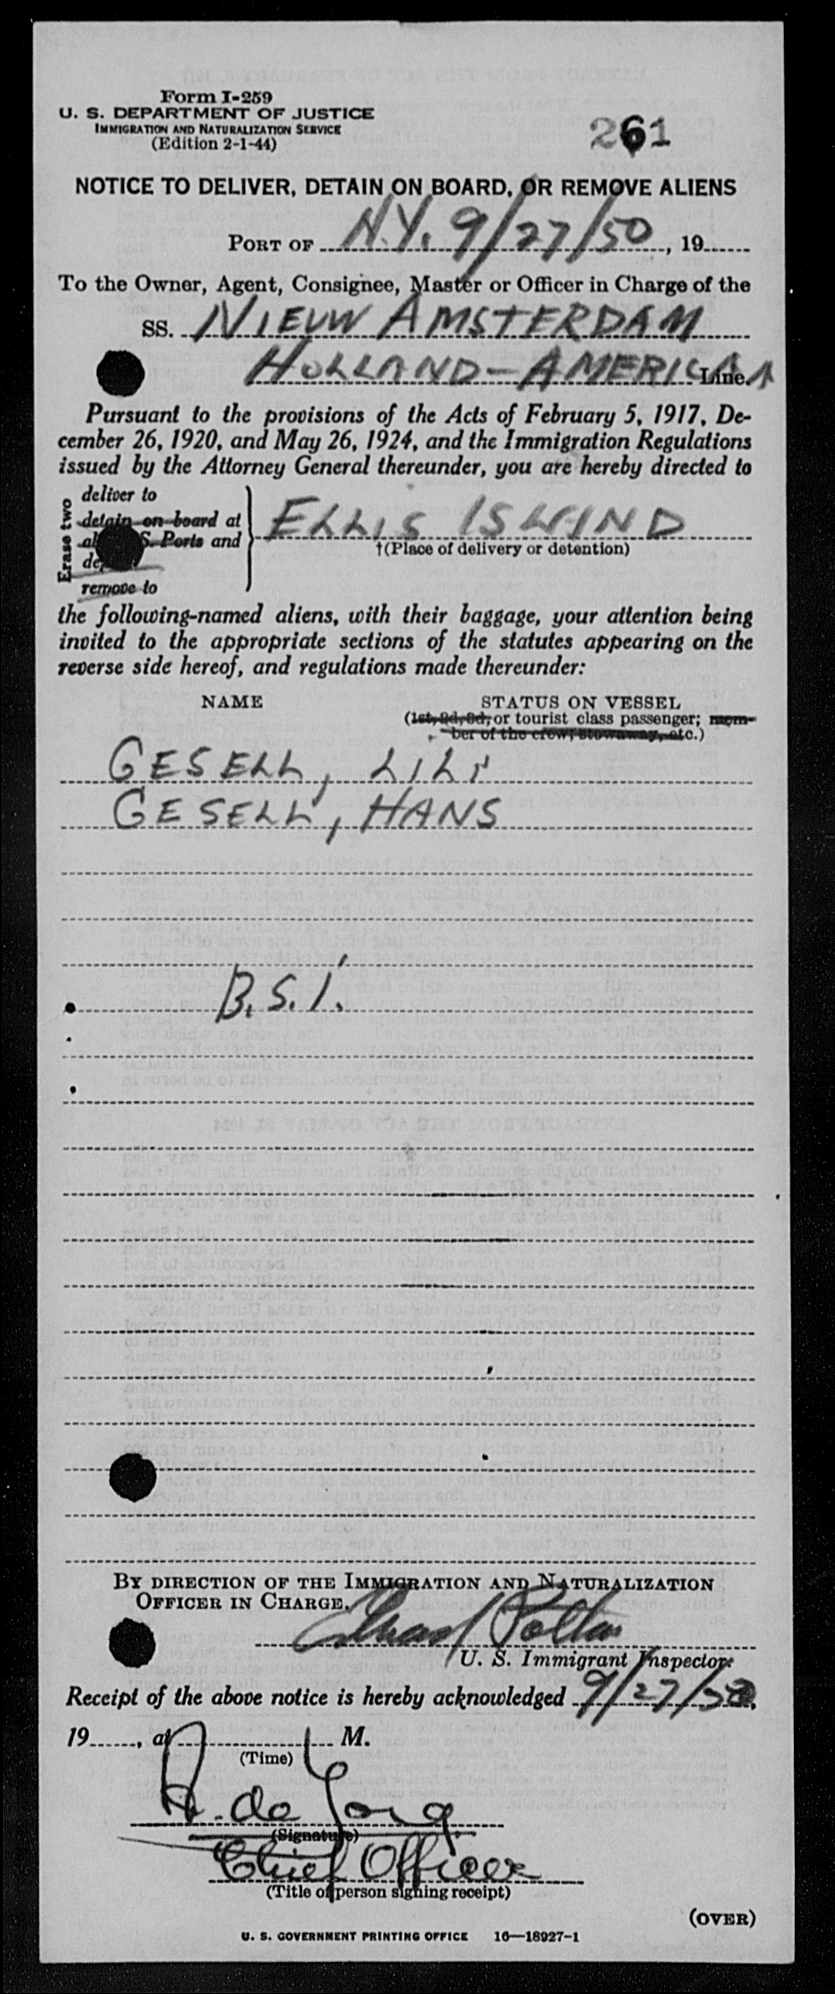 Form I-259
U. S. DEPARTMENT OF JUSTICE
IMMIGRATION AND NATURALIZATION SERVICE
(Edition 2-1-44)
261
NOTICE TO DELIVER, DETAIN ON BOARD, OR REMOVE ALIENS
PORT OF N.Y. 9/27/50, 19
To the Owner, Agent, Consignee, Master or Officer in Charge of the
SS. NIEUW AMSTERDAM
HOLLAND-AMERICA Line.
Pursuant to the provisions of the Acts of February 5, 1917, De-
cember 26, 1920, and May 26, 1924, and the Immigration Regulations
issued by the Attorney General thereunder, you are hereby directed to
Erase two
deliver to
detain on board at
S. Ports and
remove to
ELLIS ISLAND
†(Place of delivery or detention)
the following-named aliens, with their baggage, your attention being
invited to the appropriate sections of the statutes appearing on the
reverse side hereof, and regulations made thereunder:
NAME STATUS ON VESSEL
(1st, 2d, 3d, or tourist class passenger; mem-
ber of the crew, stowaway, etc.)
GESELL, LILI
GESELL, HANS
B.S.I.
BY DIRECTION OF THE IMMIGRATION AND NATURALIZATION
OFFICER IN CHARGE.
U. S. Immigrant Inspector.
Receipt of the above notice is hereby acknowledged 9/27/50,
19, at M.
(Time)
de Jong
(Signature)
Chief Officer
(Title of person signing receipt)
(OVER)
U. S. GOVERNMENT PRINTING OFFICE 16—18927-1